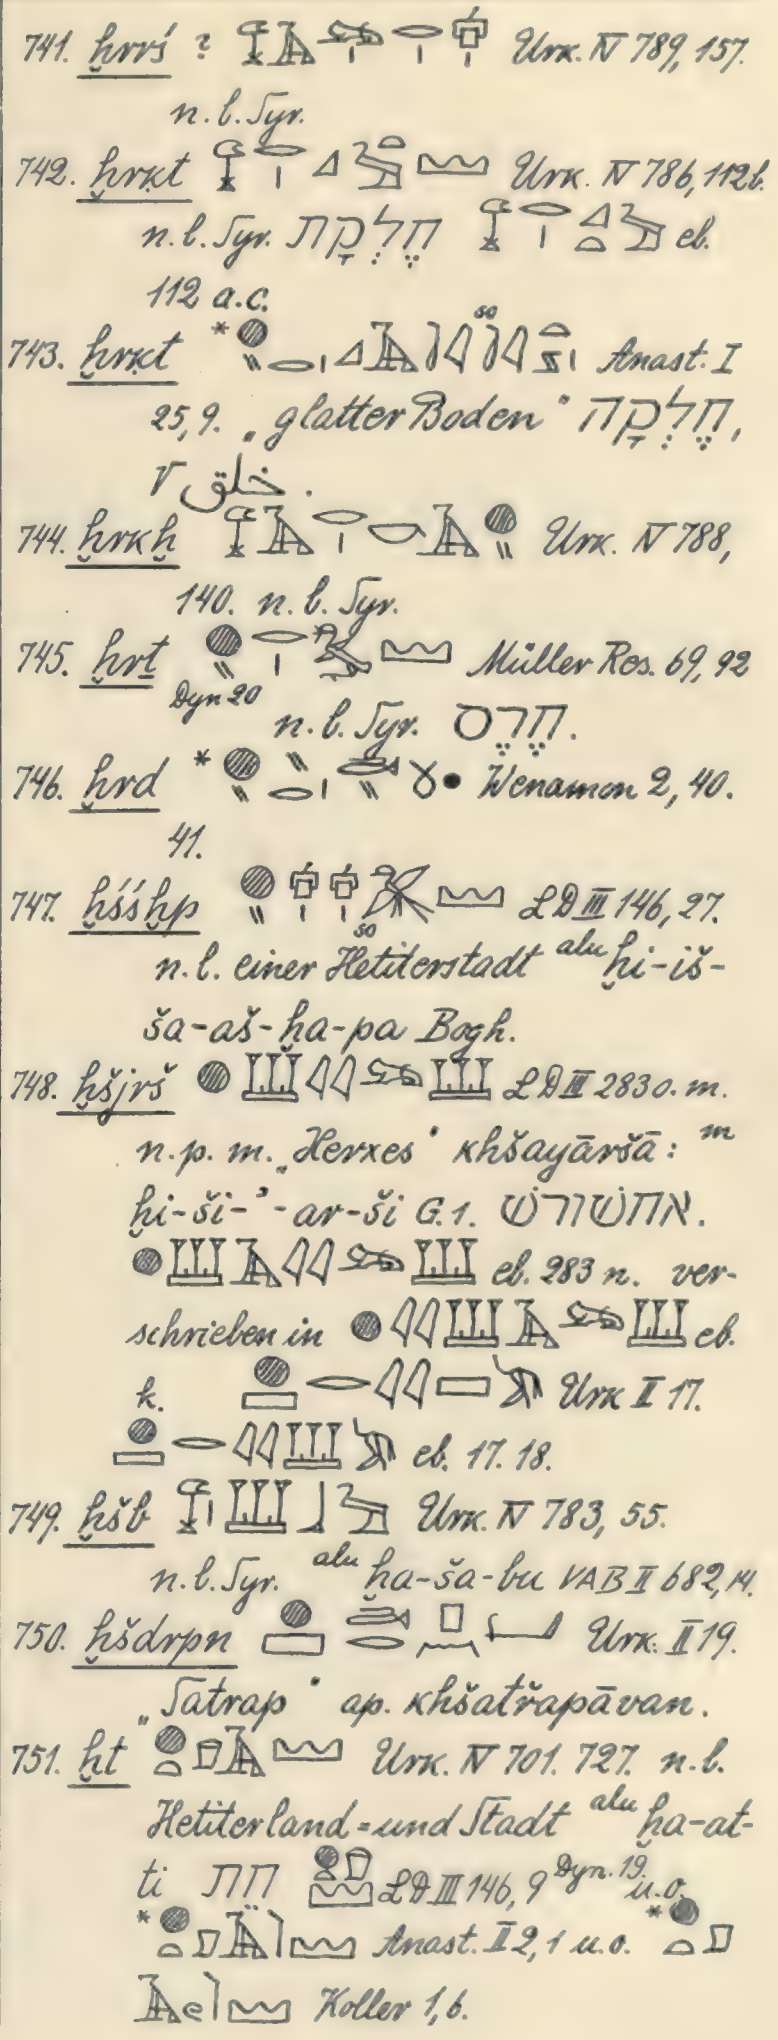 741. ḫrrś ? Urk. IV 789, 157.
n. l. Syr.
742. ḫrḳt Urk. IV 786, 112b.
n. l. Syr. חֶלְקָת eb.
112 a.c.
743. ḫrḳt * so Anast. I
25, 9. „glatter Boden“ חֶלְקָה,
√ خلق.
744. ḫrkḫ Urk. IV 788,
140. n. l. Syr.
745. ḫrṯ Müller Res. 69, 92
Dyn 20 n. l. Syr. חֶרֶס.
746. ḫrd * Wenamon 2, 40.
41.
747. ḫśśḫp so LD III 146, 27.
n. l. einer Hetiterstadt alu ḫi-iš-
ša-aš-ḫa-pa Bogh.
748. ḫšjrš LD III 283 o. m.
n. p. m. „Xerxes“ khšayāršā: m
ḫi-ši-ʾ-ar-ši G. 1. אחשורש.
eb. 283 n. ver-
schrieben in eb.
k. Urk II 17.
eb. 17. 18.
749. ḫšb Urk. IV 783, 55.
n. l. Syr. alu ḫa-ša-bu VAB II 682, 14.
750. ḫšdrpn Urk. II 19.
„Satrap“ ap. khšatřapāvan.
751. ḫt Urk. IV 701. 727. n. l.
Hetiterland- und Stadt alu ḫa-at-
ti חת LD III 146, 9 Dyn. 19. u. o.
* Anast. II 2, 1 u. o. *
Koller 1, 6.